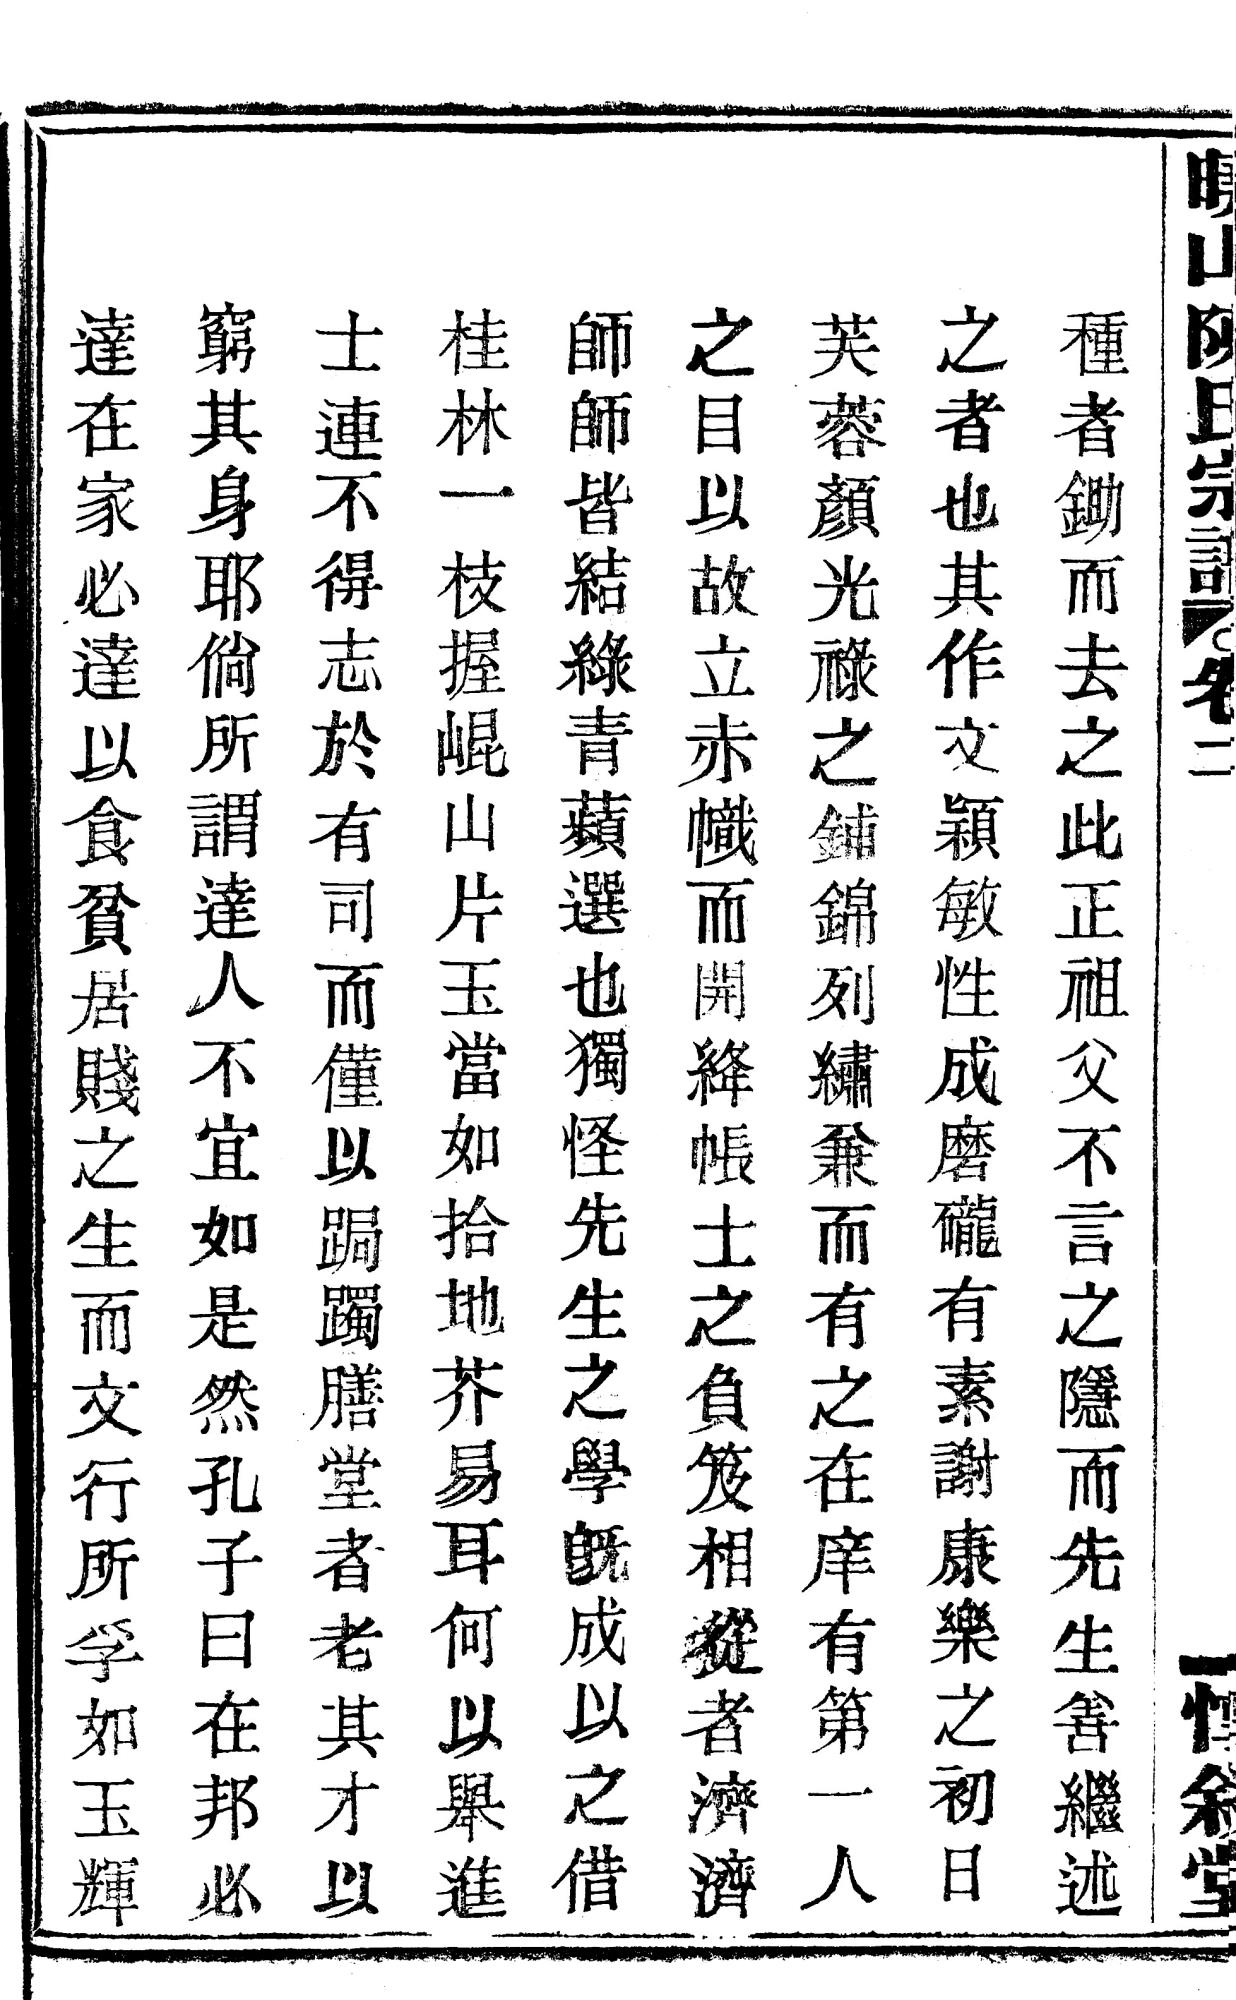 山陳氏宗譜 卷二 惇敘堂
種者鋤而去之此正祖父不言之隱而先生善繼述
之者也其作文穎敏性成磨礲有素謝康樂之初日
芙蓉顏光祿之鋪錦列繡兼而有之在庠有第一人
之目以故立赤幟而開絳帳士之負笈相從者濟濟
師師皆結綠青蘋選也獨怪先生之學旣成以之借
桂林一枝握崐山片玉當如拾地芥易耳何以舉進
士連不得志於有司而僅以跼躅膳堂者老其才以
窮其身耶倘所謂達人不宜如是然孔子曰在邦必
達在家必達以食貧居賤之生而文行所孚如玉輝